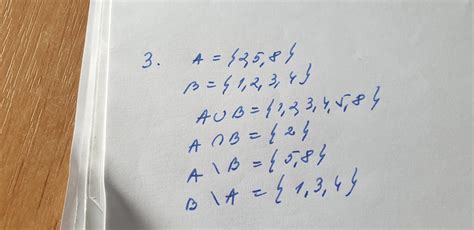 3. A = {2,5,8}
B = {1,2,3,4}
A∪B = {1,2,3,4,5,8}
A∩B = {2}
A \ B = {5,8}
B \ A = {1,3,4}